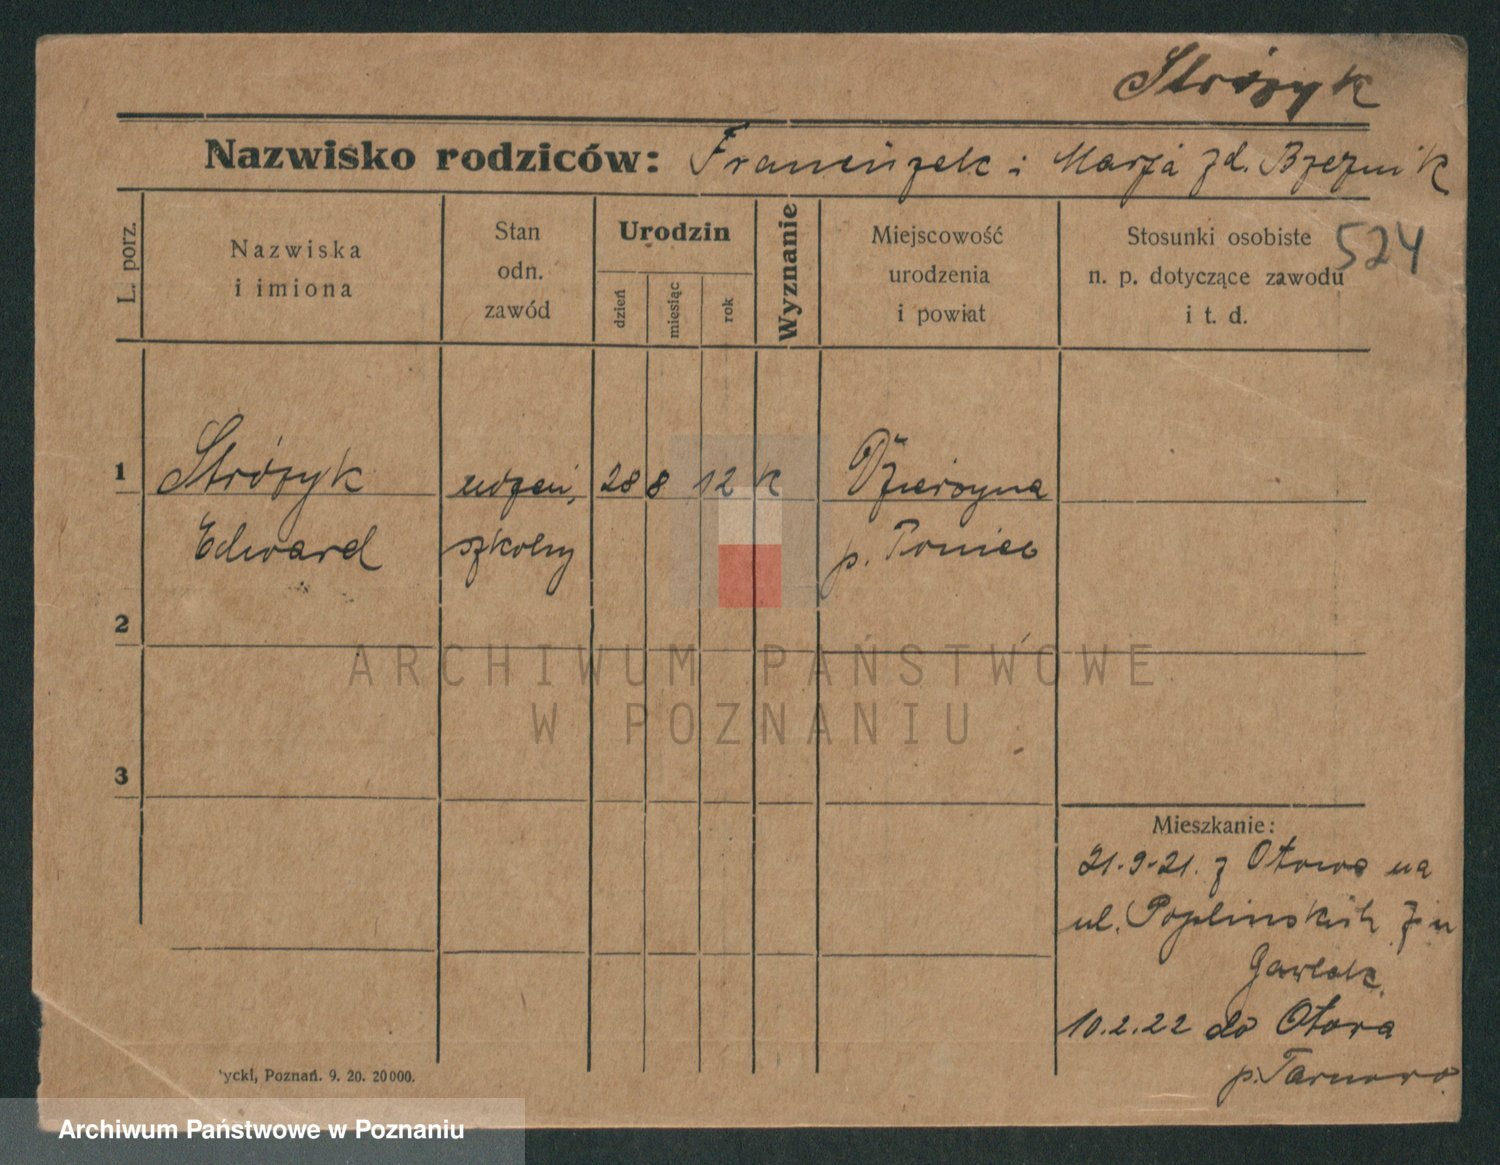 Stróżyk
Nazwisko rodziców: Franciszek i Marja zd. Brzeznik
L. porz.
Nazwiska
i imiona
Stan
odn.
zawód
Urodzin
dzień
miesiąc
rok
Wyznanie
Miejscowość
urodzenia
i powiat
Stosunki osobiste
n. p. dotyczące zawodu
i t. d.
524
1 Stróżyk uczeń, 28 8 12 k Dzierzyna
Edward szkolny p. Poniec
2
3
Mieszkanie:
21-9-21. z Otowa na
ul. Poplińskich 7 u
Gawlak.
10.2.22 do Otowa
p. Tarnowo
ycki, Poznań. 9. 20. 20000.
ARCHIWUM PAŃSTWOWE
W POZNANIU
Archiwum Państwowe w Poznaniu